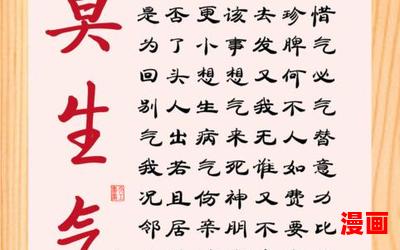 莫生气
是否更该去珍惜
为了小事发脾气
回头想想又何必
别人生气我不气
气出病来无人替
我若气死谁如意
况且伤神又费力
邻居亲朋不要比
漫画